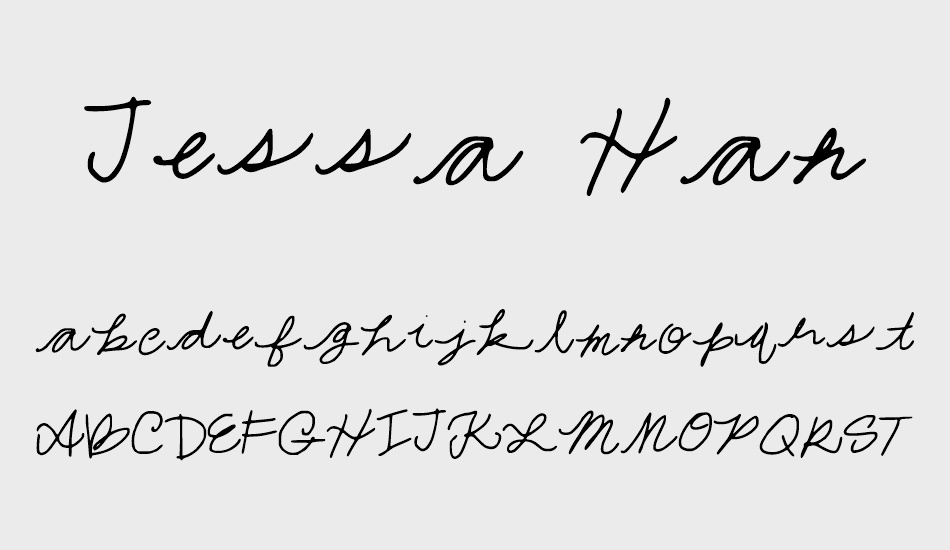 Jessa Han
abcdefghijklmnopqrst
ABCDEFGHIJKLMNOPQRST